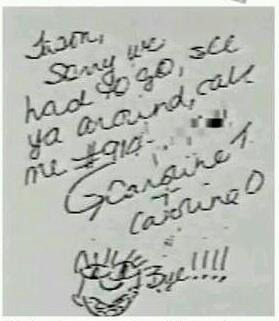 Jason,
Sorry we
had to go, see
ya around, call
me #910-
Caroline T.
+
Caroline O
Bye!!!!